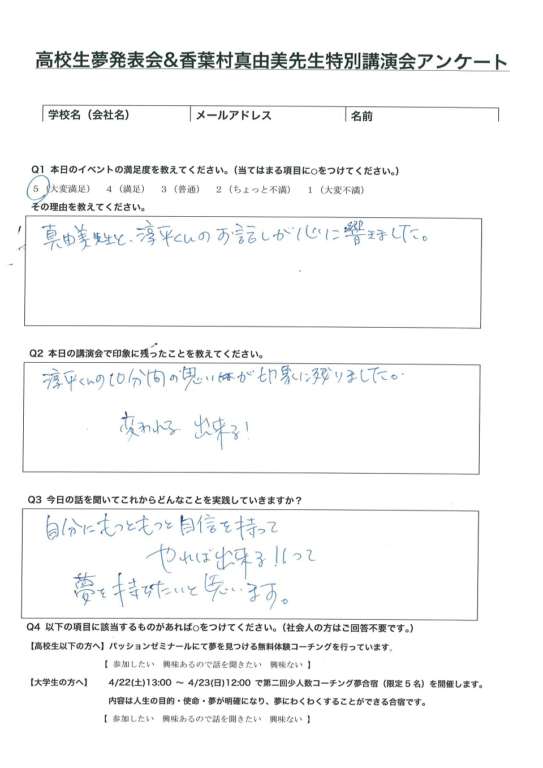 高校生夢発表会&香葉村真由美先生特別講演会アンケート
学校名（会社名） メールアドレス 名前
Q1 本日のイベントの満足度を教えてください。（当てはまる項目に○をつけてください。）
5（大変満足） 4（満足） 3（普通） 2（ちょっと不満） 1（大変不満）
その理由を教えてください。
真由美先生と、淳平くんのお話しが心に響きました。
Q2 本日の講演会で印象に残ったことを教えてください。
淳平くんの10分間の思いが印象に残りました。
変われる 出来る!
Q3 今日の話を聞いてこれからどんなことを実践していきますか？
自分にもっともっと自信を持って
やれば出来る!!って
夢を持ちたいと思います。
Q4 以下の項目に該当するものがあれば○をつけてください。（社会人の方はご回答不要です。）
【高校生以下の方へ】パッションゼミナールにて夢を見つける無料体験コーチングを行っています。
【 参加したい 興味あるので話を聞きたい 興味ない 】
【大学生の方へ】 4/22(土)13:00 ～ 4/23(日)12:00 で第二回少人数コーチング夢合宿（限定5名）を開催します。
内容は人生の目的・使命・夢が明確になり、夢にわくわくすることができる合宿です。
【 参加したい 興味あるので話を聞きたい 興味ない 】